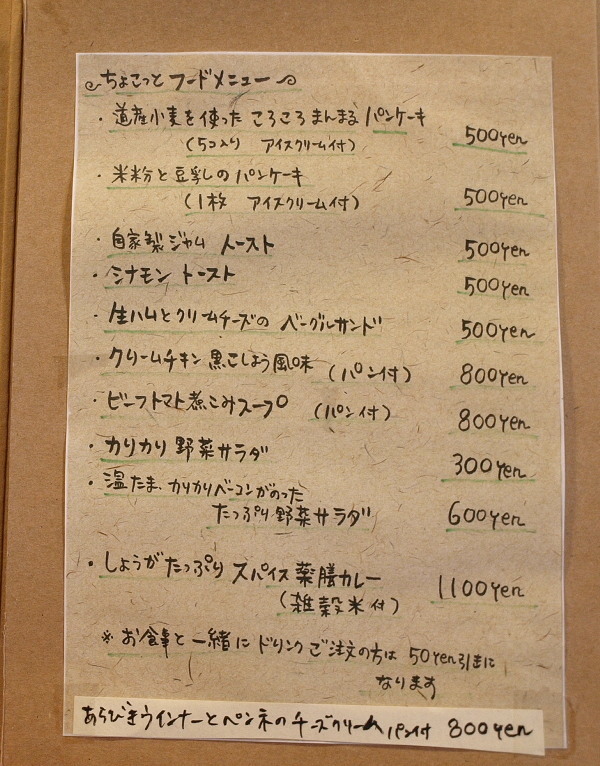 ちょこっと フードメニュー
・道産小麦を使った ころころまんまる パンケーキ
(5コ入り アイスクリーム付) 500yen
・米粉と豆乳の パンケーキ
(1枚 アイスクリーム付) 500yen
・自家製ジャム トースト 500yen
・シナモン トースト 500yen
・生ハムとクリームチーズの ベーグルサンド 500yen
・クリームチキン 黒こしょう風味 (パン付) 800yen
・ビーフトマト煮こみスープ (パン付) 800yen
・カリカリ 野菜サラダ 300yen
・温たま、カリカリベーコンがのった
たっぷり野菜サラダ 600yen
・しょうがたっぷり スパイス 薬膳カレー 1100yen
(雑穀米付)
※ お食事と一緒に ドリンクご注文の方は 50yen引きに
なります
あらびきウインナーとペンネのチーズクリーム パン付 800yen